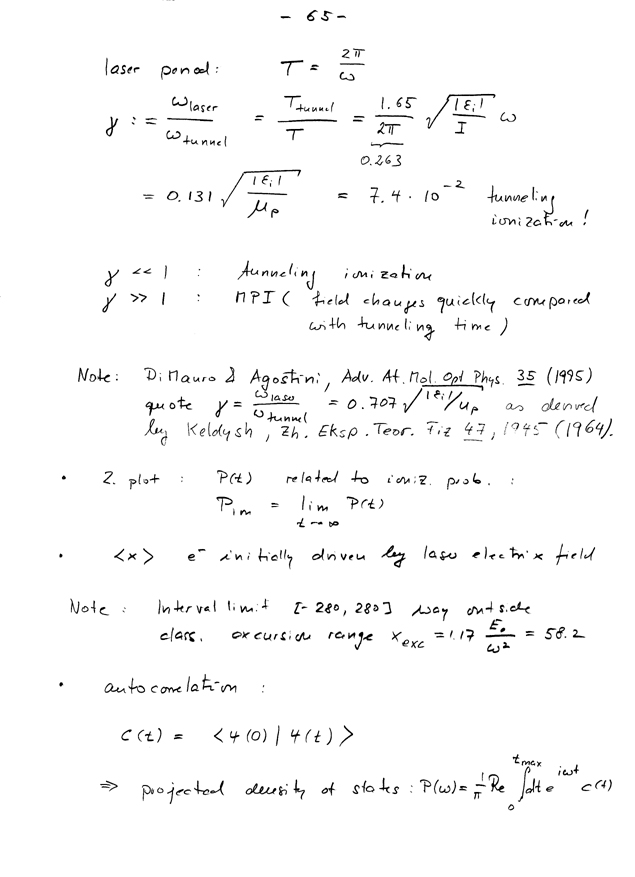 - 65 -
laser period: T = 2π/ω
γ := ω_laser/ω_tunnel = T_tunnel/T = 1.65/2π √(|ε_i|/I) ω
0.263
= 0.131 √(|ε_i|/μ_p) = 7.4 · 10^-2 tunneling
ionization!
γ << 1 : tunneling ionization
γ >> 1 : MPI ( field changes quickly compared
with tunneling time )
Note: DiMauro & Agostini, Adv. At. Mol. Opt Phys. 35 (1995)
quote γ = ω_laser/ω_tunnel = 0.707 √(|ε_i|/u_p) as derived
by Keldysh, Zh. Eksp. Teor. Fiz 47, 1945 (1964).
• 2. plot : P(t) related to ioniz. prob. :
P_im = lim t→∞ P(t)
• <x> e^- initially driven by laser electric field
Note : Interval limit [-280, 280] way outside
class. excursion range x_exc = 1.17 E_0/ω^2 = 58.2
• autocorrelation :
C(t) = <ψ(0) | ψ(t)>
⇒ projected density of states : P(ω) = 1/π Re ∫_0^{t_max} dt e^{iωt} C(t)